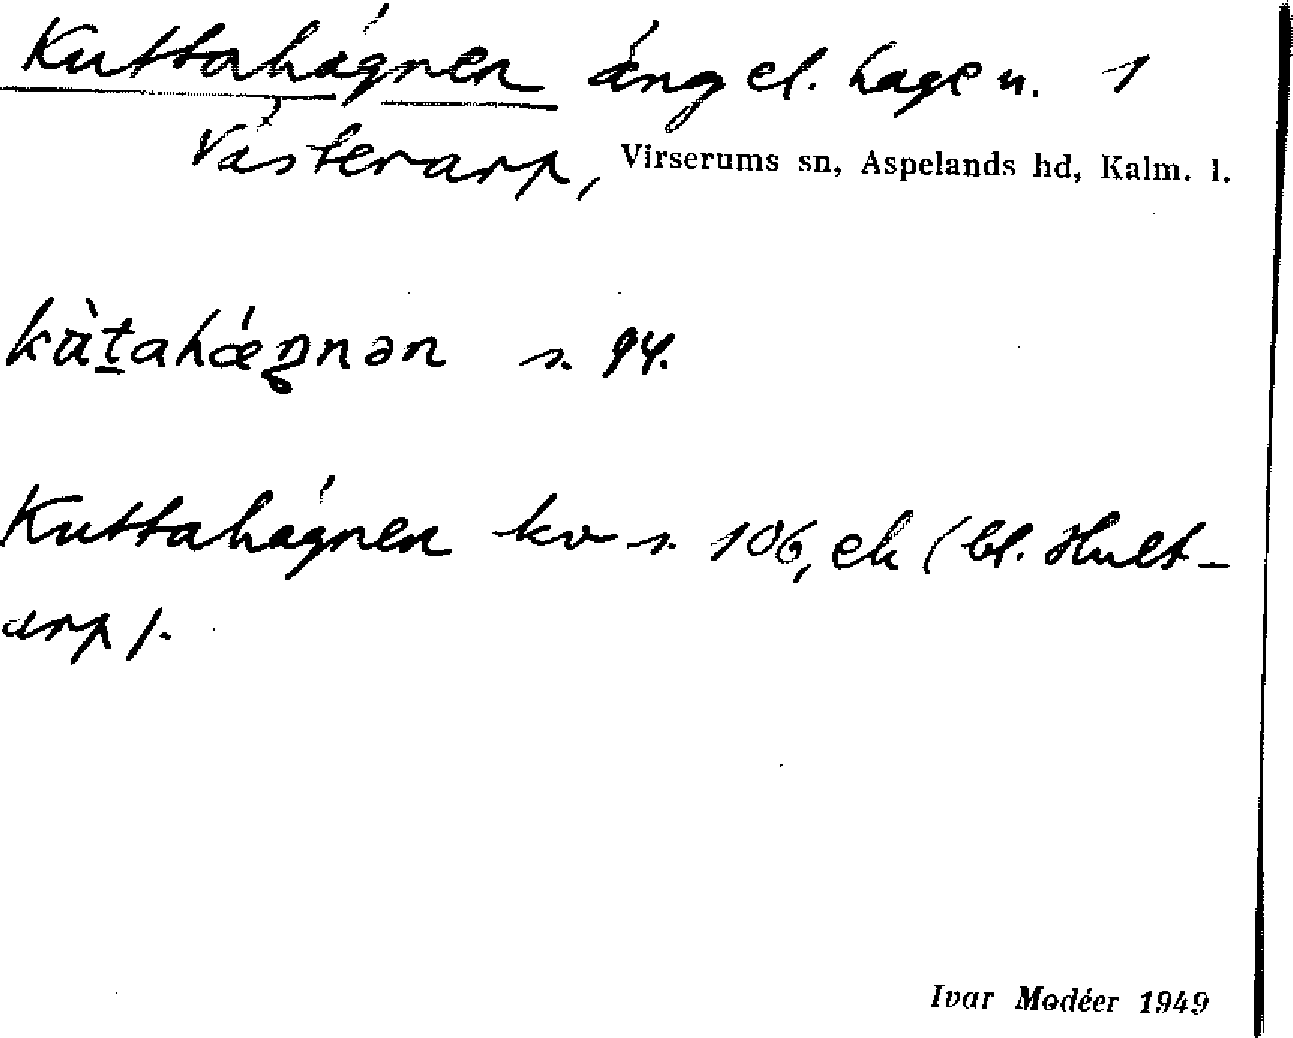 Kuttahägnen äng el. hagen. 1
Västerarp, Virserums sn, Aspelands hd, Kalm. l.
s. 94.
Kuttahägnen kv s. 106, ek (bl. Hult-
arp).
Ivar Modéer 1949